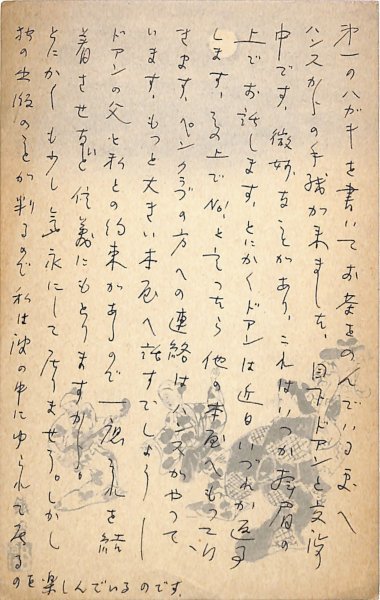 第一のハガキを書いてお茶をのんでいる更へ
ハンスカラの手紙が来ました、目下ドアンと交渉
中です、微妙なことがあり、これはいつか拝眉の
上でお話します、とにかくドアンは近日いづれか返事
します、その上でNo!と云ったら他の本屋へもってい
きます、ペンクラブの方への連絡はハンスがやって
います、もっと大きい本屋へ話すでしょう——
ドアンの父と私との約束があるので一応それを結
着させないと信義にもとりますから。
とにかくも少し気永にして居りませう。しかし
独の出版のことが判るので私は波の中にゆられて居る
のを楽しんでいるのです。